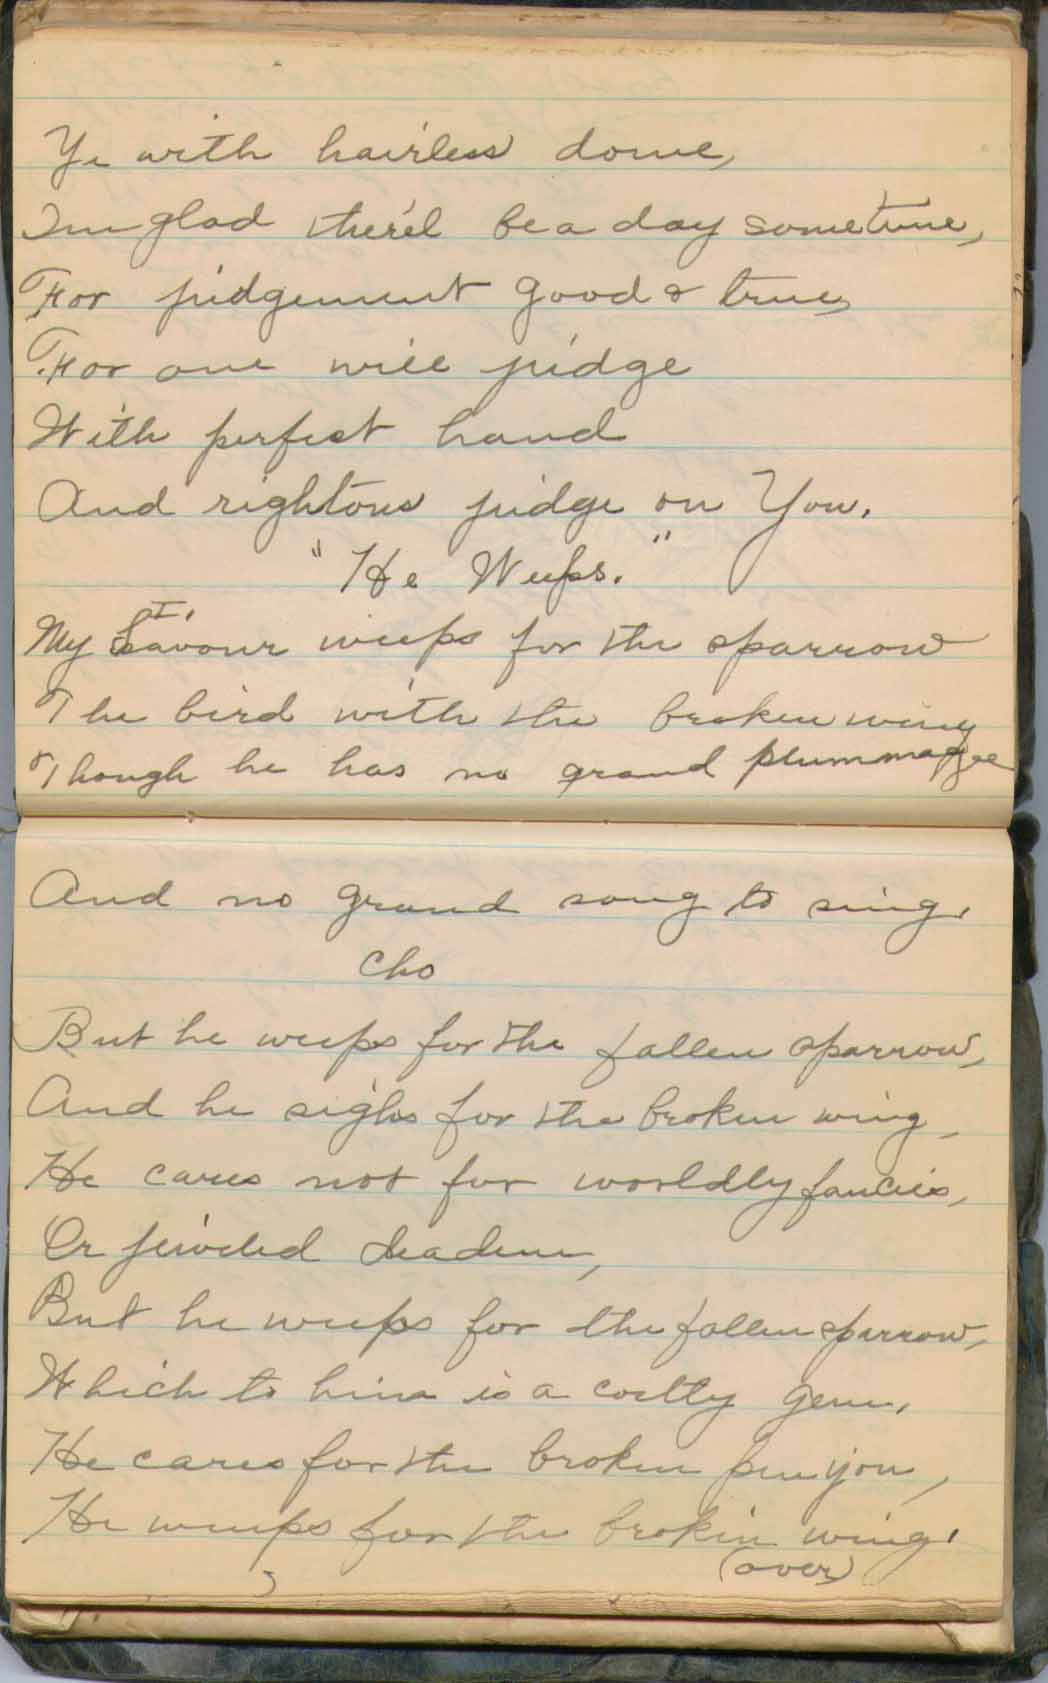 Ye with hairless dome,
Im glad there'l be a day sometime,
For jidgement good & true,
For one will jidge
With perfect hand
And rightous jidge on You.
"He Weeps."
I.
My Savour weeps for the sparrow
The bird with the broken wing
Though he has no grand plummage
And no grand song to sing.
Cho
But he weeps for the fallen sparrow,
And he sighs for the broken wing,
He cares not for worldly fancies,
Or jeweled deadem,
But he weeps for the fallen sparrow,
Which to him is a costly gem.
He cares for the broken pinyon,
He weeps for the brokin wing.
(over)